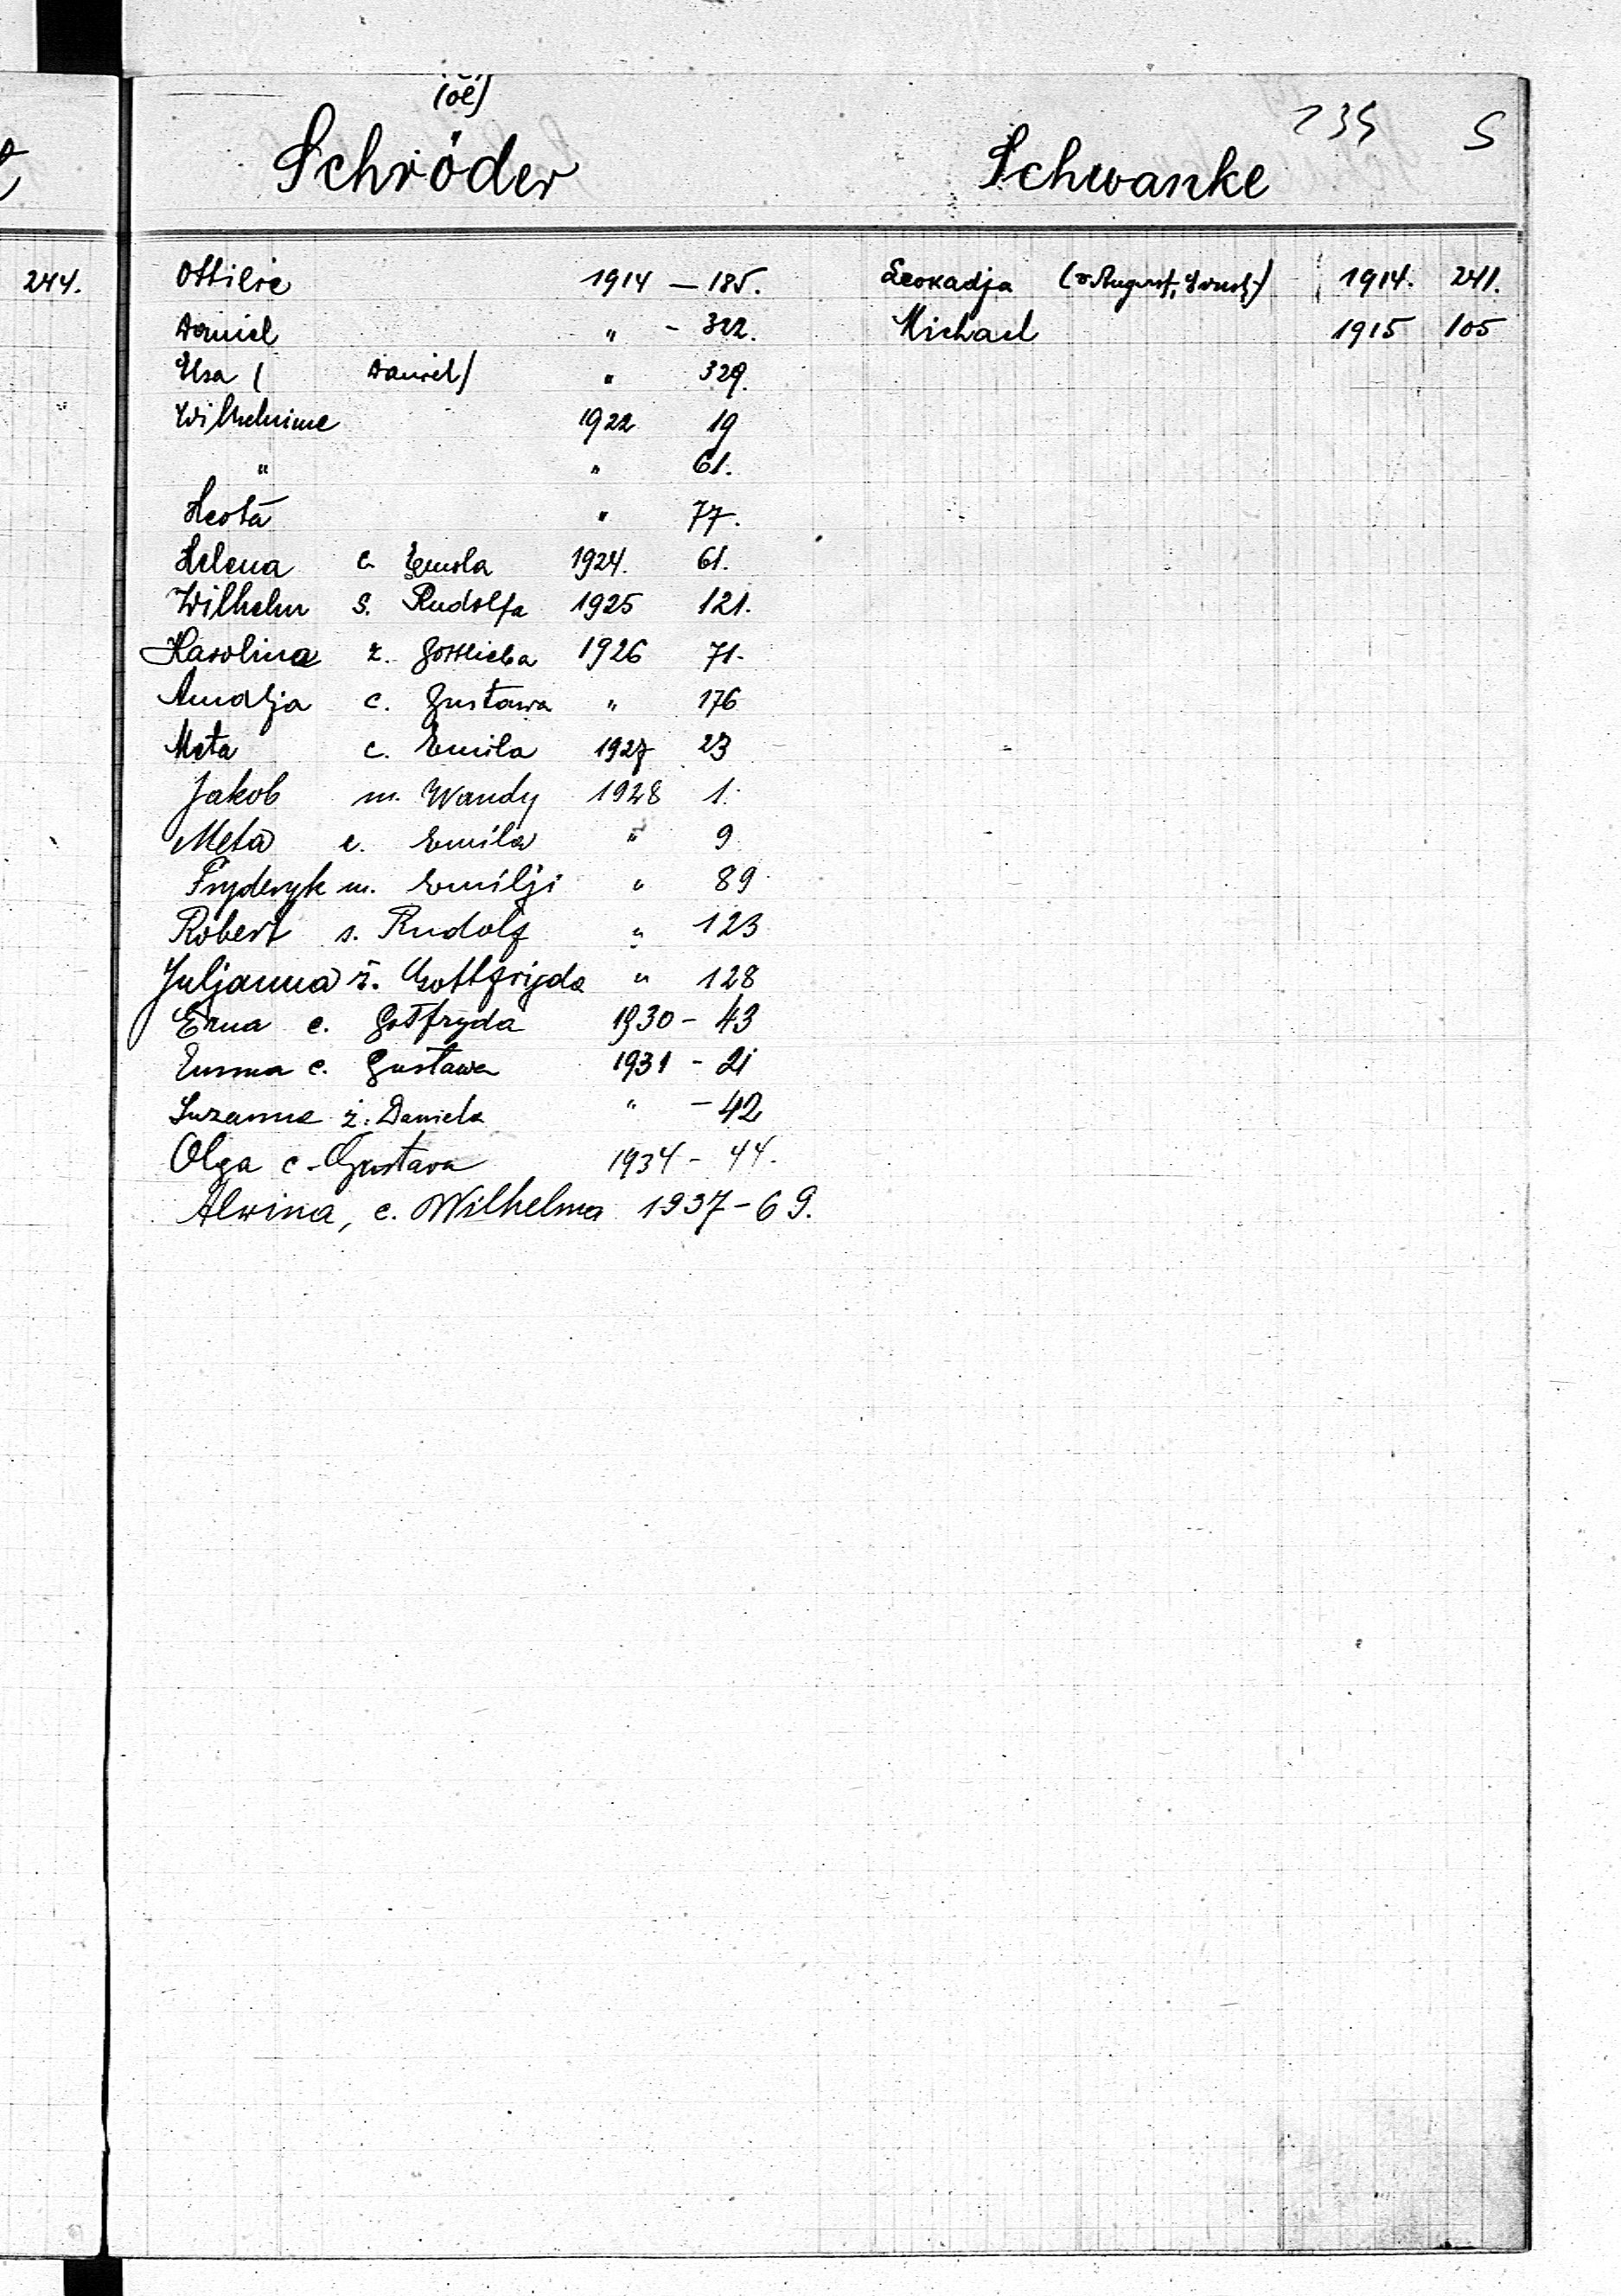 (oe)
Schröder
Ottilie 1914 — 185.
Daniel " - 322.
Elsa ( Daniel) " 329.
Wilhelmine 1922 19
" " 61.
Herta " 77.
Helena c. Emila 1924. 61.
Wilhelm S. Rudolfa 1925 121.
Karolina ż. Gottlieba 1926 71.
Amalja c. Gustawa " 176
Meta c. Emila 1927 23
Jakob m. Wandy 1928 1.
Meta c. Emila " 9
Fryderyk m. Emilji " 89
Robert s. Rudolf " 123
Juljanna ż. Gottfryda " 128
Erna c. Gotfryda 1930 - 43
Emma c. Gustawa 1931 - 21
Zuzanna ż. Daniela " - 42
Olga c. Gustava 1934 - 44.
Alwina, c. Wilhelma 1937 - 69.
235 S
Schwanke
Leokadja August, 1914. 241.
Michael 1915 105
244.